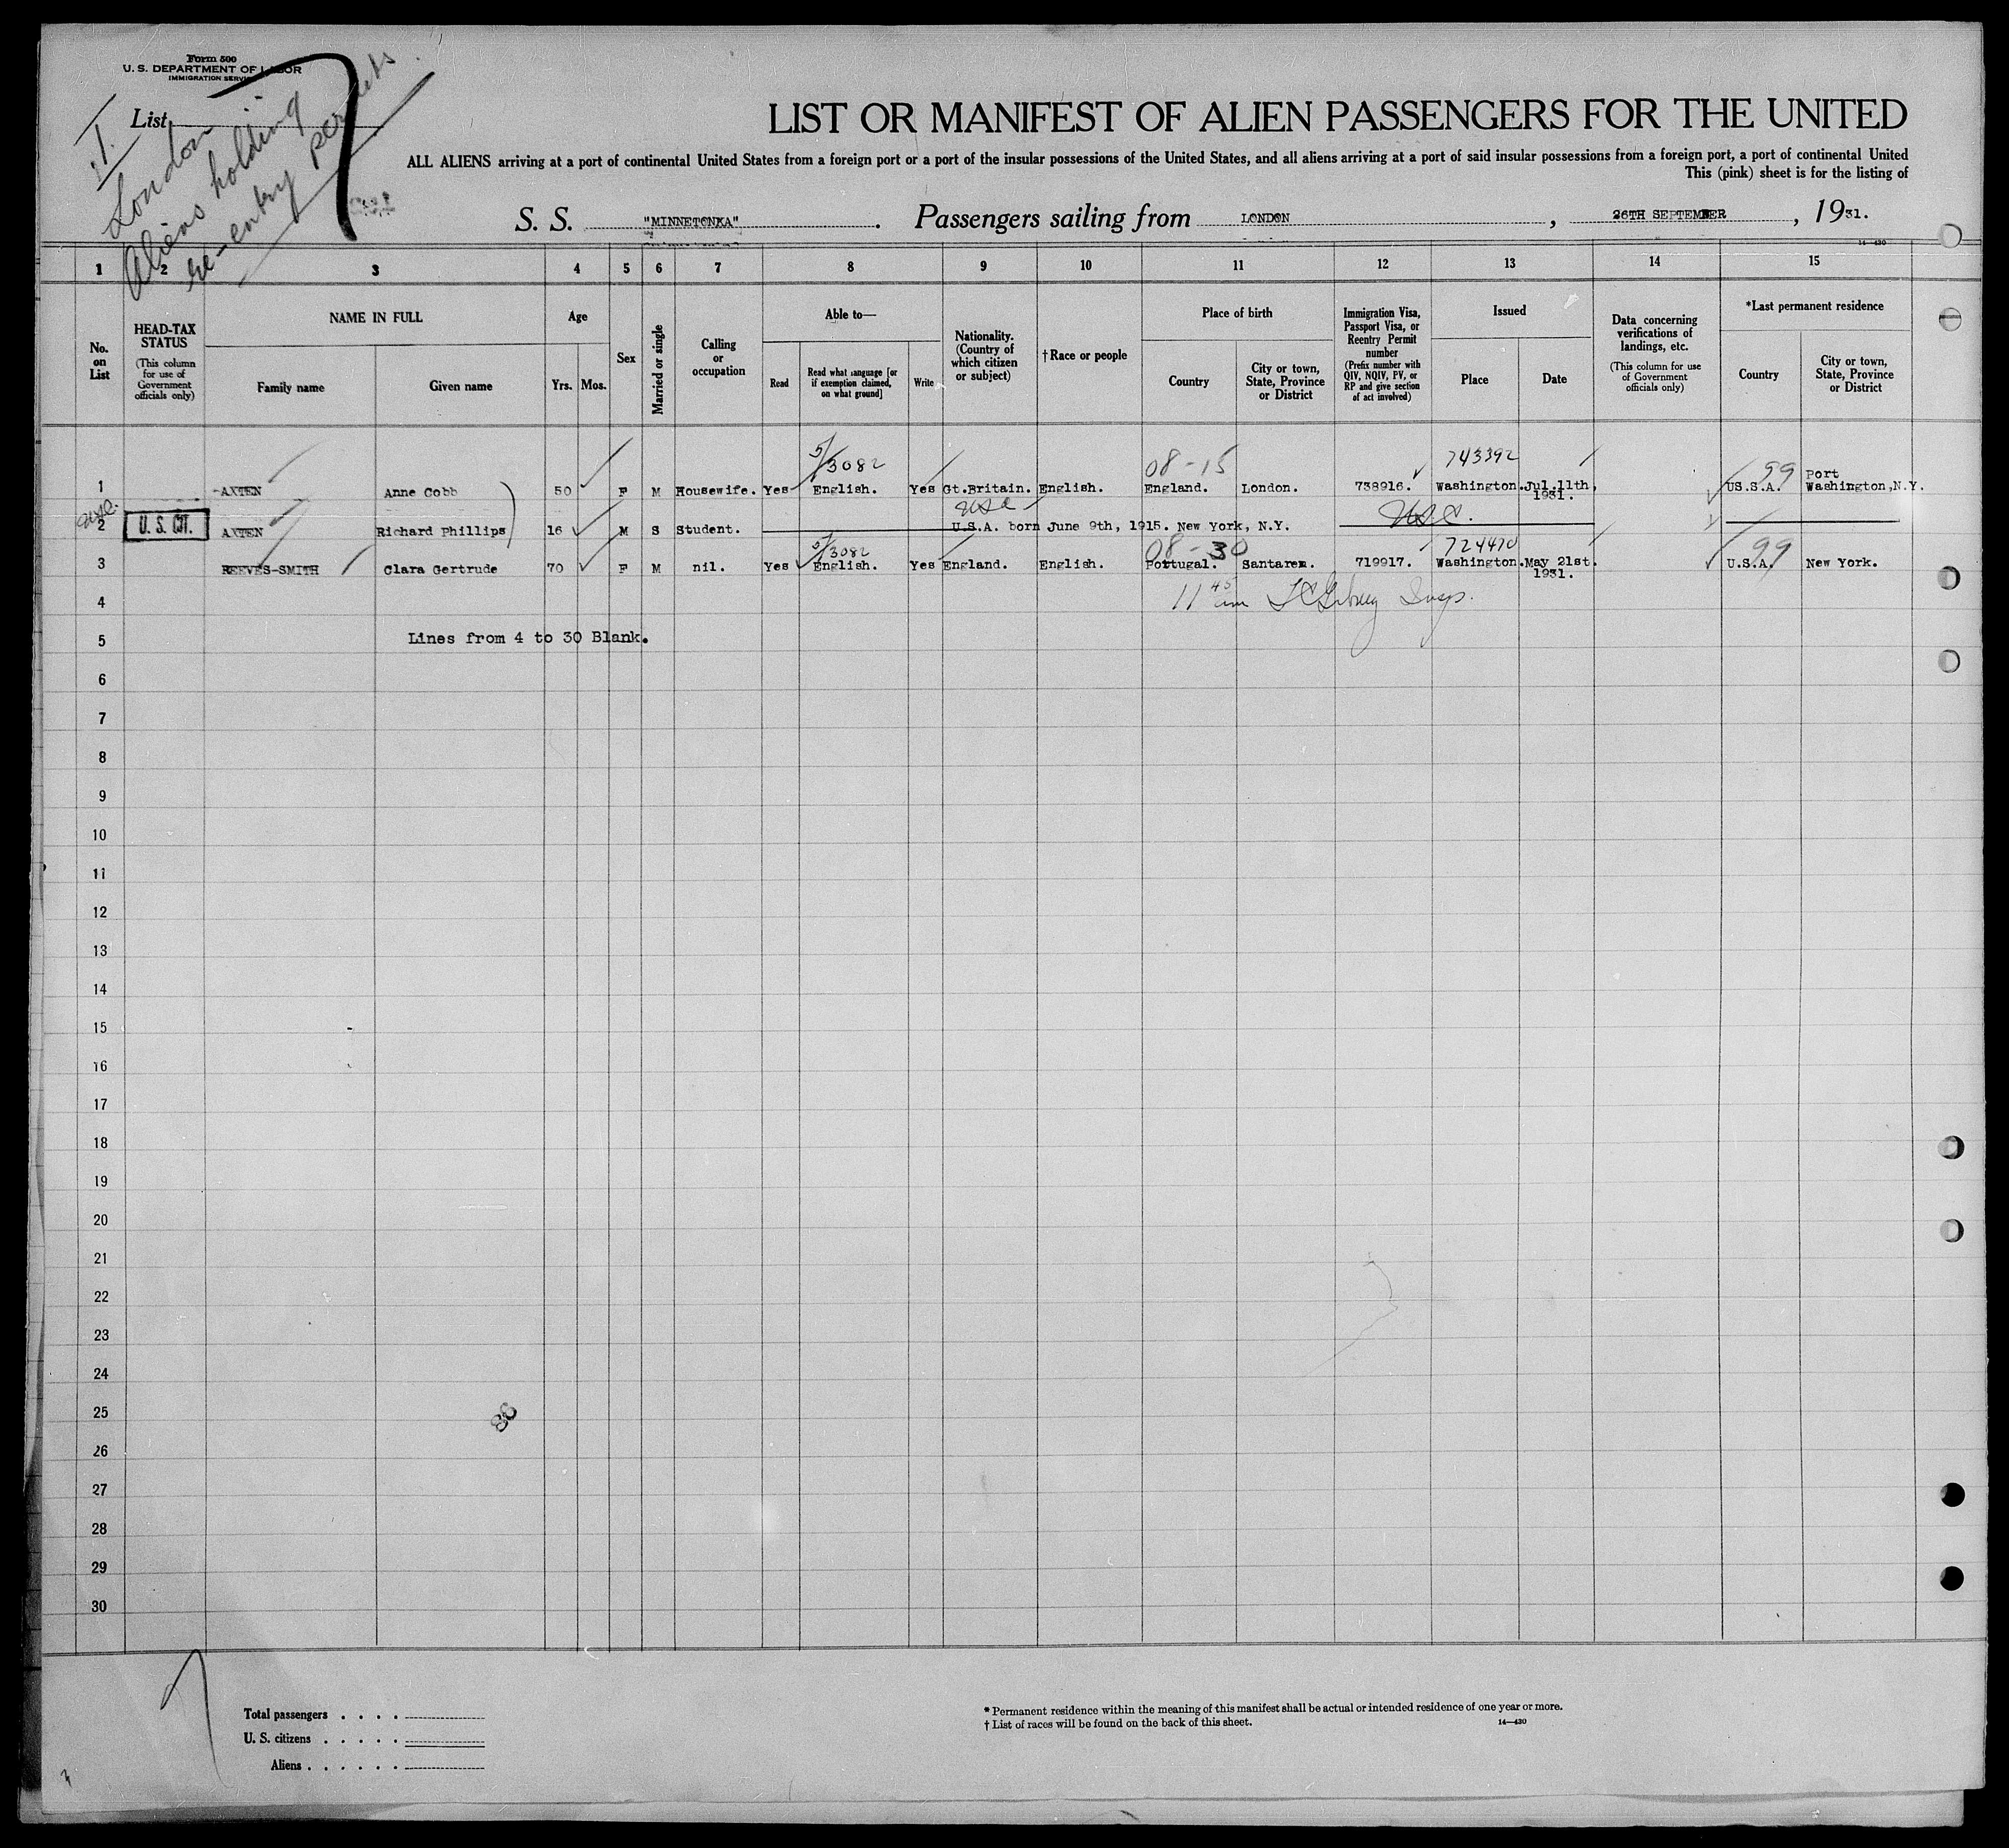 Form 500
U. S. DEPARTMENT OF LABOR
IMMIGRATION SERVICE
List
London
Aliens holding
re-entry permits
LIST OR MANIFEST OF ALIEN PASSENGERS FOR THE UNITED
ALL ALIENS arriving at a port of continental United States from a foreign port or a port of the insular possessions of the United States, and all aliens arriving at a port of said insular possessions from a foreign port, a port of continental United
This (pink) sheet is for the listing of
S. S. "MINNETONKA". Passengers sailing from LONDON, 26TH SEPTEMBER, 1931.
14—430
1 2 3 4 5 6 7 8 9 10 11 12 13 14 15
No. on List
HEAD-TAX STATUS
(This column for use of Government officials only)
NAME IN FULL
Family name
Given name
Age
Yrs. Mos.
Sex
Married or single
Calling or occupation
Able to—
Read
Read what language [or if exemption claimed, on what ground]
Write
Nationality. (Country of which citizen or subject)
†Race or people
Place of birth
Country
City or town, State, Province or District
Immigration Visa, Passport Visa, or Reentry Permit number
(Prefix number with QIV, NQIV, PV, or RP and give section of act involved)
Issued
Place
Date
Data concerning verifications of landings, etc.
(This column for use of Government officials only)
*Last permanent residence
Country
City or town, State, Province or District
5/3082 08-15 743392 99
1 AXTEN Anne Cobb 50 F M Housewife. Yes English. Yes Gt.Britain. English. England. London. 738916. Washington. Jul.11th, 1931. US.S.A. Port Washington,N.Y.
usc. usc
2 U. S. CIT. AXTEN Richard Phillips 16 M S Student. U.S.A. born June 9th, 1915. New York, N.Y. usc.
5/3082 08-30 724470 99
3 REEVES-SMITH Clara Gertrude 70 F M nil. Yes English. Yes England. English. Portugal. Santarem. 719917. Washington. May 21st. 1931. U.S.A. New York.
4 11 45 am Insp.
5 Lines from 4 to 30 Blank.
6
7
8
9
10
11
12
13
14
15
16
17
18
19
20
21
22
23
24
25
26
27
28
29
30
Total passengers . . . .
U. S. citizens . . . . .
Aliens . . . . . .
* Permanent residence within the meaning of this manifest shall be actual or intended residence of one year or more.
† List of races will be found on the back of this sheet.
14—430